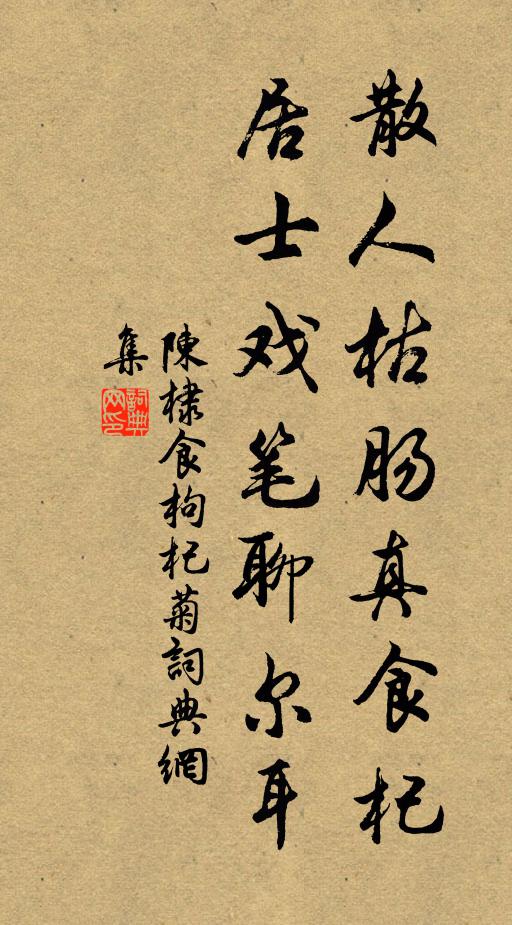 散人枯肠真食杞
居士戏笔聊尔耳
陳棣食枸杞菊詞典網
集
詞典網印